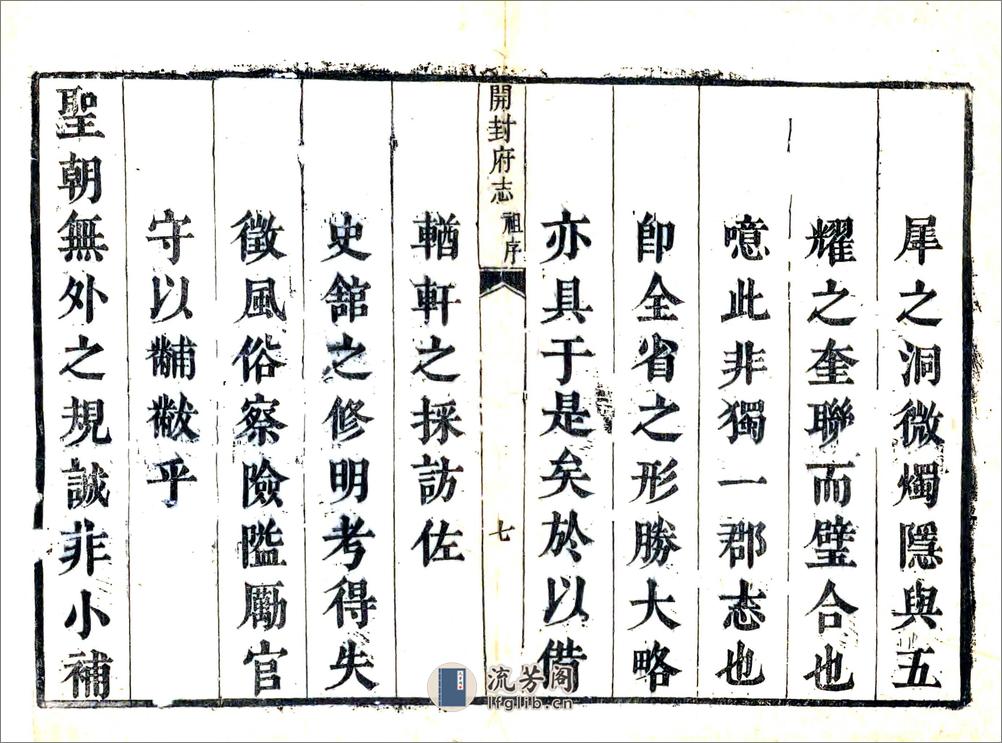 犀之洞微燭隱與五
耀之奎聯而璧合也
噫此非獨一郡志也
卽全省之形勝大略
亦具于是矣於以備
開封府志 祖序
七
輶軒之採訪佐
史舘之修明考得失
徵風俗察險隘勵官
守以黼黻乎
聖朝無外之規誠非小補
流芳阁
lfglib.cn